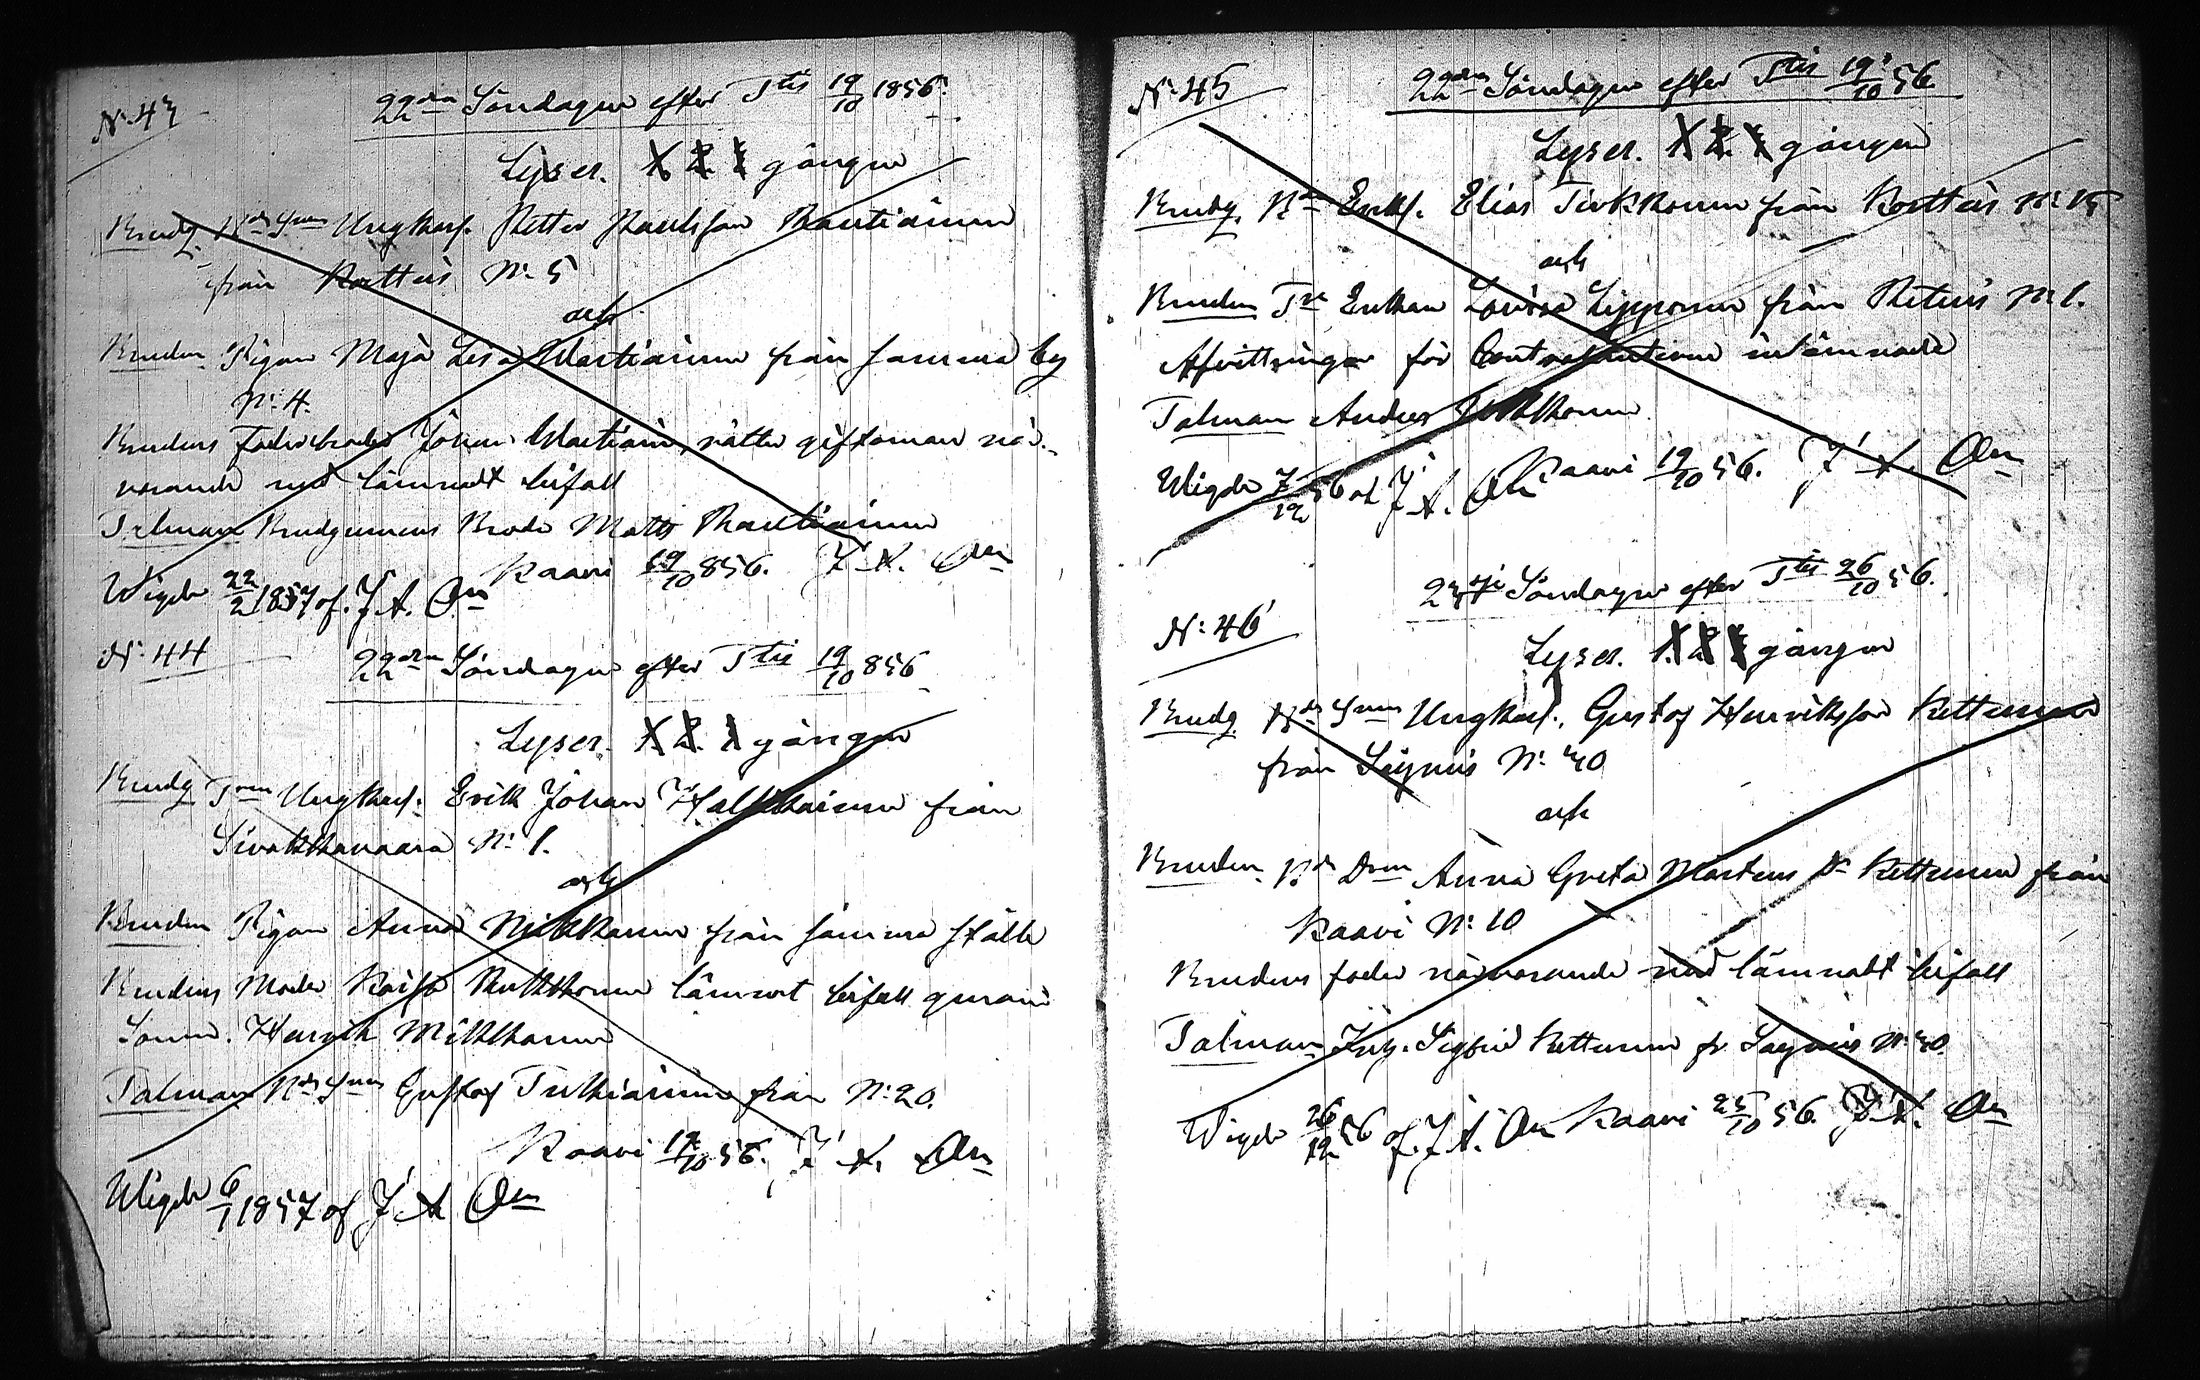 N: 43
22dra Söndagen efter Ttis 19/10 1856.
Lyser. 1. 2. 3 gången
Brudg. Bds Snn Ungkarl. Petter Paulsson Rautiainen
från Kortteis N: 5
och
Bruden Pigan Maja Lisa Wartiainen från samma by
N: 4.
Brudens Faderbroder Johan Wartiain, rätte giftoman när-
varande med lämnadt bifall
Talman Brudgummens Broder Matts Rautiainen
Kaavi 19/10 856. J. A. Än
Wigde 22/2 1857 af. J. A. Än
N: 44
22dra Söndagen efter Ttis 19/10 856
Lyser. 1. 2. 3 gången
Brudg Ungkarl. Erik Johan från
Sivakkavaara N: 1.
och
Bruden Pigan Anna Mikkonen från samma ställe
Brudens Moder Kaisa lämnat bifall genom
Sonen. Henrik Mikkonen
Talman Bds Snn Gustaf Tukiainen från N: 20.
Kaavi 19/10 56. J. A. Än
Wigde 6/1 1857 af J A Än
N: 45
22dra Söndagen efter Ttis 19/10 56.
Lyser. 1 2. 3 gången
Brudg. Bn Enkl. Elias Tirkkonen från Kortteis N: 15
och
Bruden Enkan Lovisa Lipponen från Retuis N: 1.
Afvittringar för Contrahenterne inlämnade
Talman Anders Tirkkonen
Kaavi 19/10 56. J. A. Än
Wigde 7/12 56 af J. A. Än
23dje Söndagen efter Ttis 26/10 56.
N: 46
Lyser. 1. 2 3 gången
Brudg Bds Snn Ungkarl. Gustaf Henriksson Kettunen
från N: 40
och
Bruden Bds Drn Anna Greta Mårtens Dr Kettunen från
Kaavi N: 10
Brudens fader närvarande med lämnadt bifall
Talman Sigfrid Kettunen fr N: 40.
Kaavi 25/10 56. J. A. Än
Wigde 26/12 56 af. J. A. Än